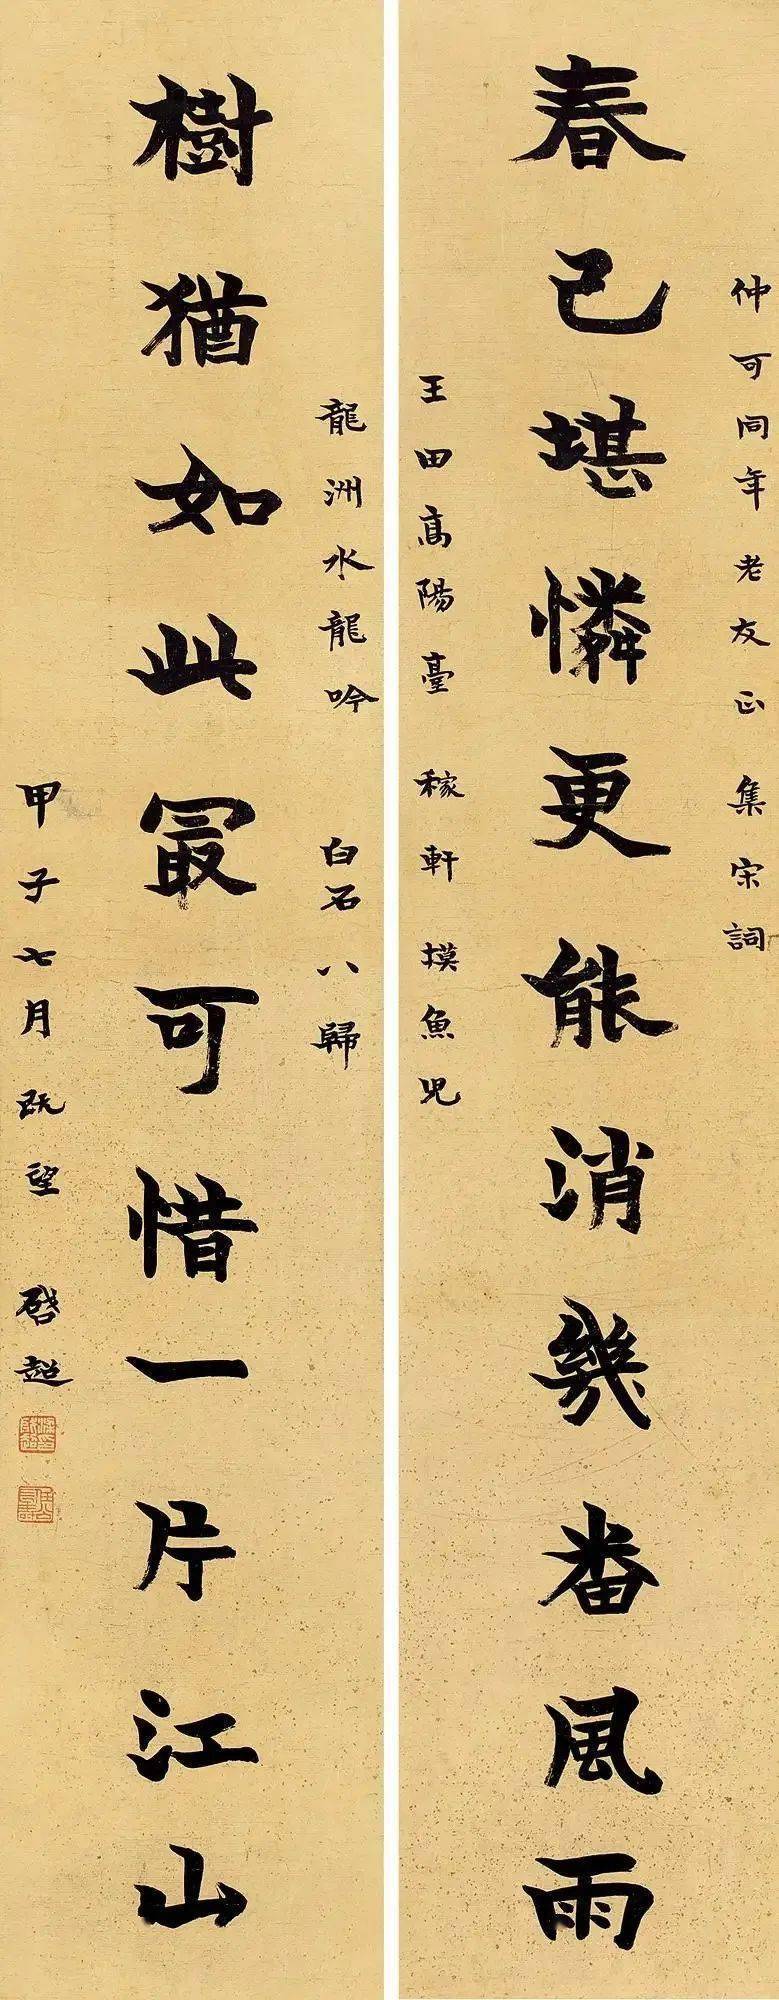 仲可同年老友正 集宋詞
春已堪憐更能消幾番風雨
王田高陽臺 稼軒 摸魚兒
龍洲水龍吟 白石八歸
樹猶如此冣可惜一片江山
甲子七月既望 啓超